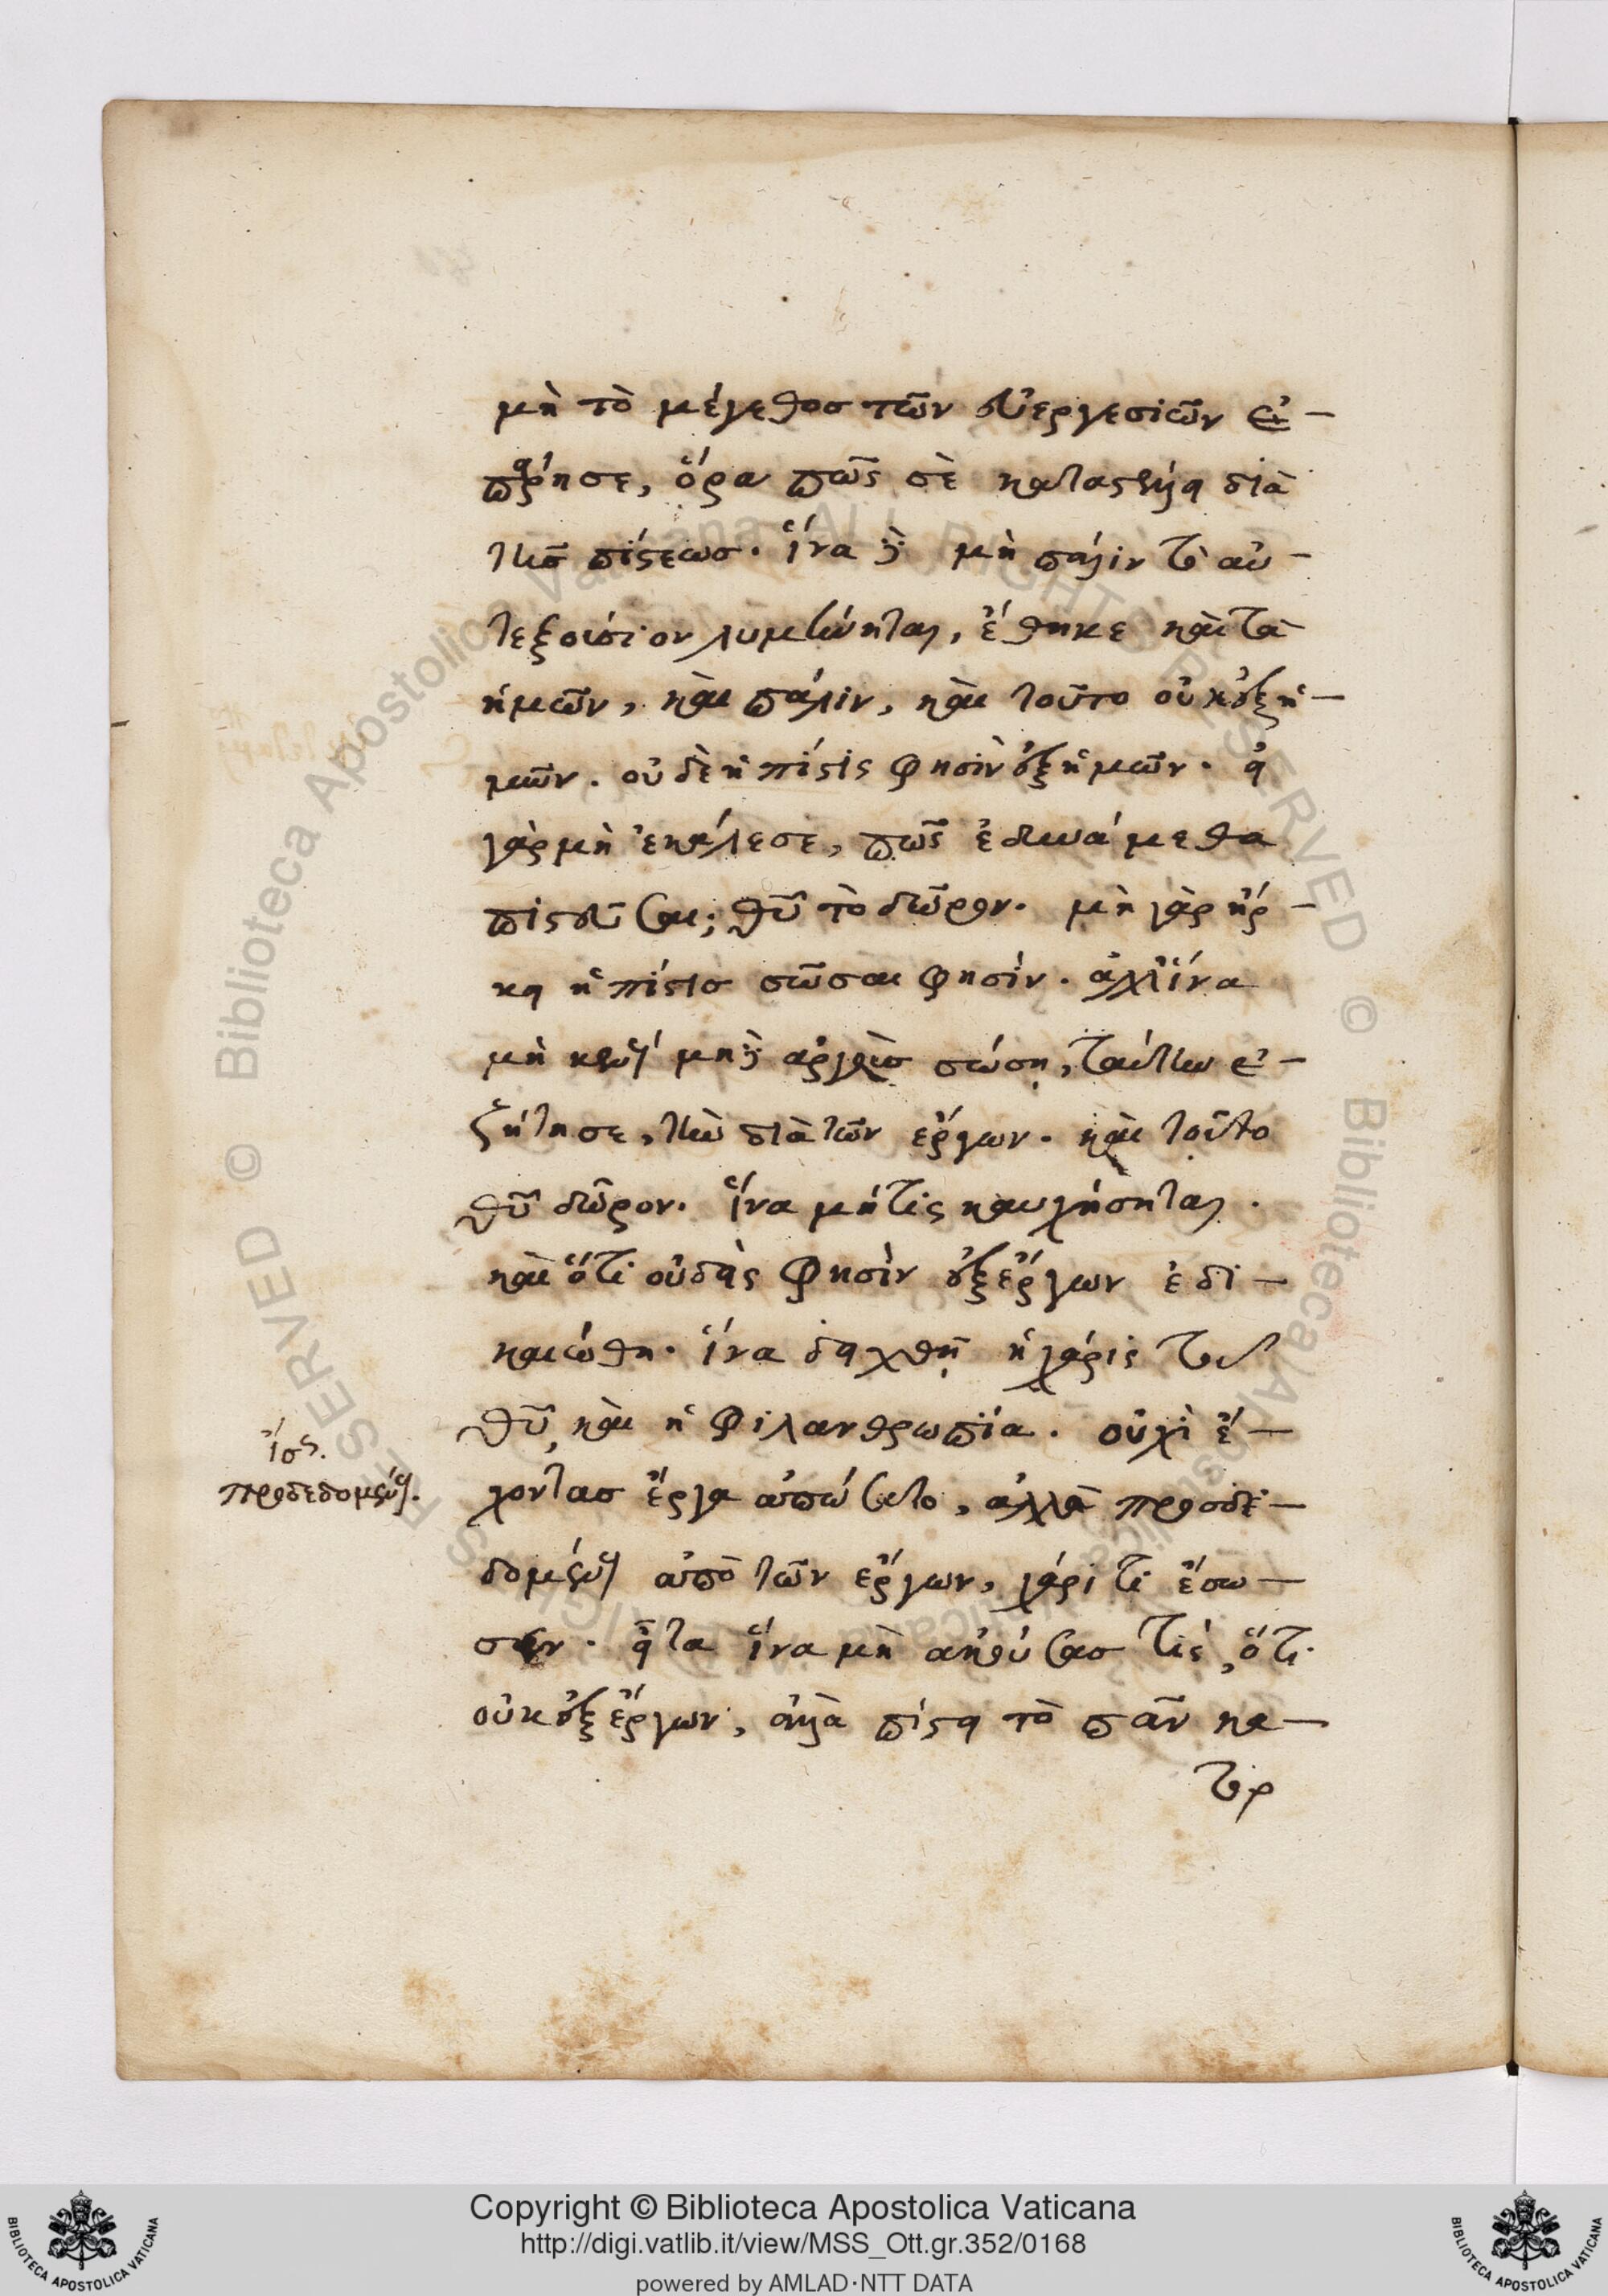 μὴ τὸ μέγεθος τῶν εὐεργεσιῶν ἐ-
πάρῃ σε, ὅρα πῶς σὲ καταστέλλει διὰ
τῆς πίστεως. ἵνα δὲ μὴ πάλιν τὸ αὐ-
τεξούσιον λυμαίνηται, ἔθηκε καὶ τὰ
ἡμῶν, καὶ πάλιν, καὶ τοῦτο οὐκ ἐξ ἡ-
μῶν. οὐδὲ ἡ πίστις φησὶν ἐξ ἡμῶν. εἰ
γὰρ μὴ ἐκάλεσε, πῶς ἐδυνάμεθα
πιστεῦσαι; θῦ τὸ δῶρον. μὴ γὰρ ἤρ-
κει ἡ πίστις σῶσαι φησίν. ἀλλ' ἵνα
μὴ κενοὺς μηδὲ ἀργοὺς σώσῃ, ταύτην ἐ-
ζήτησε, τὴν διὰ τῶν ἔργων. καὶ τοῦτο
θῦ δῶρον. ἵνα μή τις καυχήσηται.
καὶ ὅτι οὐδεὶς φησὶν ἐξ ἔργων ἐδι-
καιώθη. ἵνα δειχθῇ ἡ χάρις τοῦ
θῦ, καὶ ἡ φιλανθρωπία. οὐχὶ ἔ-
χοντας ἔργα ἀπώσατο, ἀλλὰ προσδε-
δομένους ἀπὸ τῶν ἔργων, χάριτι ἔσω-
σεν. εἶτα ἵνα μὴ ἀκούσας τὶς, ὅτι
οὐκ ἐξ ἔργων, ἀλλὰ πίστει τὸ πᾶν κα-
τορ
ἴσς.
προδεδομένους.
Copyright © Biblioteca Apostolica Vaticana
http://digi.vatlib.it/view/MSS_Ott.gr.352/0168
powered by AMLAD·NTT DATA
BIBLIOTECA APOSTOLICA VATICANA
BIBLIOTECA APOSTOLICA VATICANA